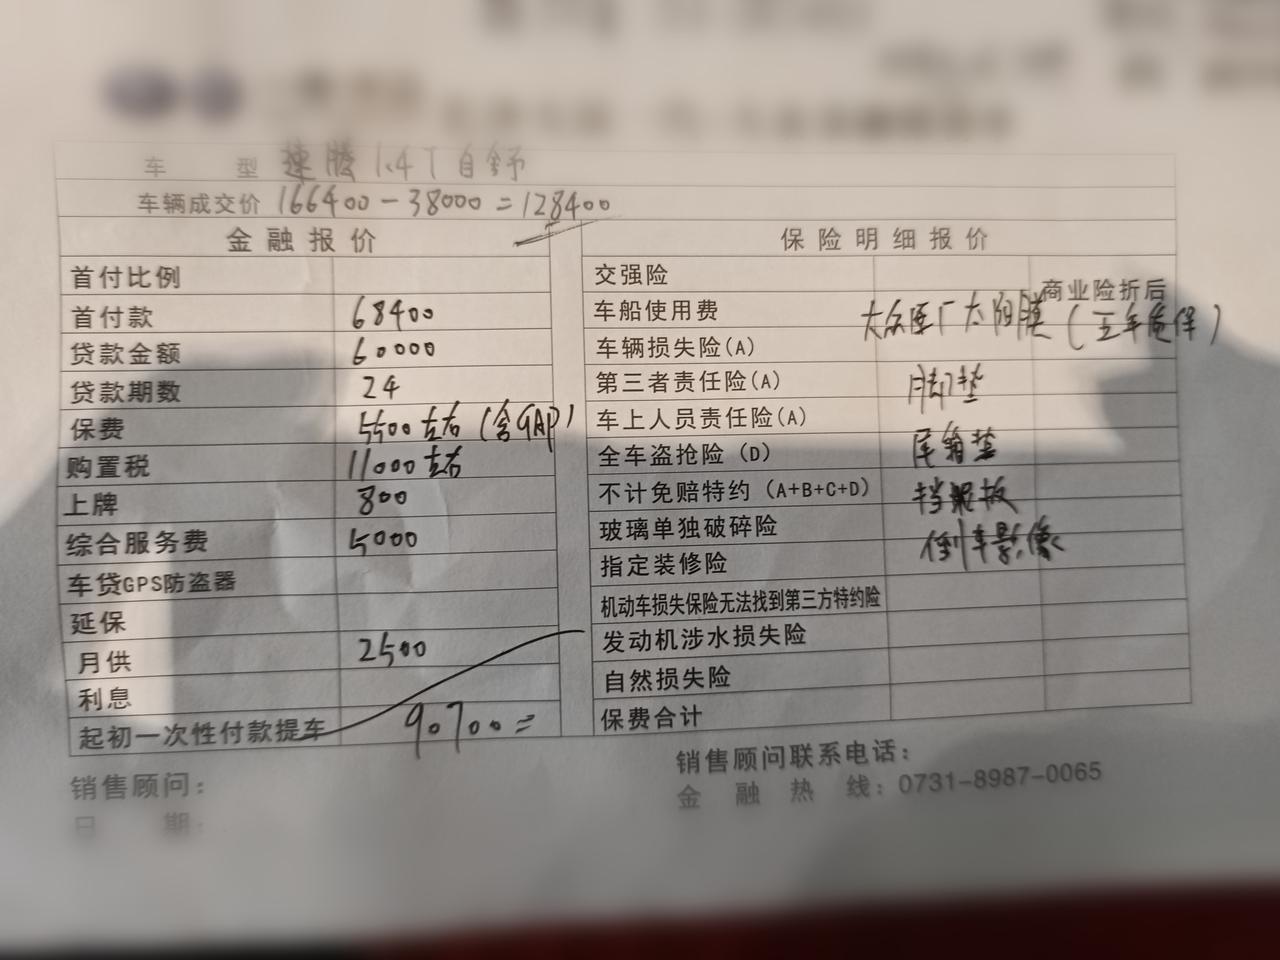 车 型 速腾 1.4T 自舒
车辆成交价 166400-38000=128400
金融报价
首付比例
首付款 68400
贷款金额 60000
贷款期数 24
保费 5500左右(含GAP)
购置税 11000左右
上牌 800
综合服务费 5000
车贷GPS防盗器
延保
月供 2500
利息
起初一次性付款提车 90700=
保险明细报价
交强险
商业险折后
车船使用费 大众原厂太阳膜(五年质保)
车辆损失险(A)
第三者责任险(A) 脚垫
车上人员责任险(A)
全车盗抢险(D) 尾箱垫
不计免赔特约(A+B+C+D) 挡泥板
玻璃单独破碎险 倒车影像
指定装修险
机动车损失保险无法找到第三方特约险
发动机涉水损失险
自然损失险
保费合计
销售顾问:
销售顾问联系电话:
日 期:
金 融 热 线:0731-8987-0065